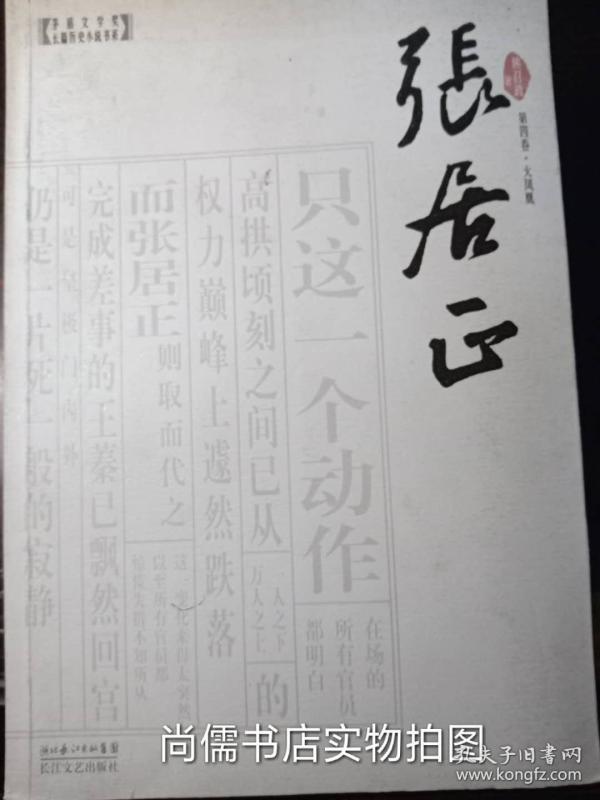 茅盾文学奖
长篇历史小说书系
張居正
熊召政
著
第四卷·火凤凰
只这一个动作
在场的
所有官员
都明白
高拱顷刻之间已从
一人之下
万人之上
的
权力巅峰上遽然跌落
这一变化来得太突然
以至所有官员都
惊慌失措不知所从
而张居正
则取而代之
完成差事的王蓁已飘然回宫
可是皇极门内外
仍是一片死一般的寂静
湖北长江出版集团
长江文艺出版社
尚儒书店实物拍图
孔夫子旧书网
www.kongfz.com